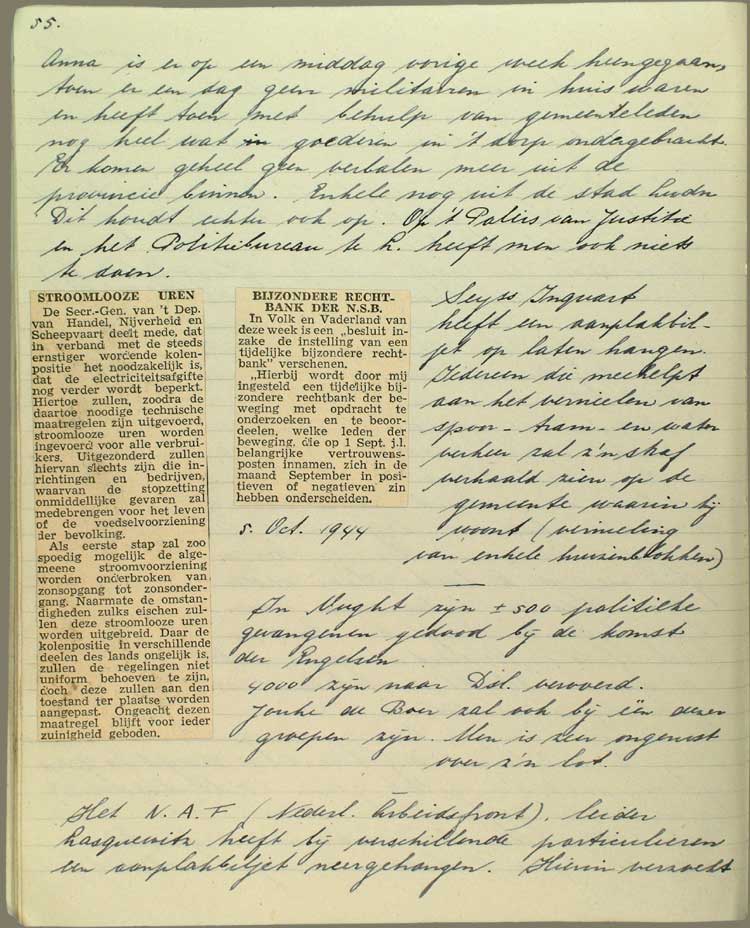 55.
Anna is er op een middag vorige week heengegaan,
toen er een dag geen militairen in huis waren
en heeft toen met behulp van gemeenteleden
nog heel wat in goederen in 't dorp ondergebracht.
Er komen geheel geen verbalen meer uit de
provincie binnen. Enkele nog uit de stad
Dit houdt echter ook op. Op 't Paleis van Justitie
en het Politiebureau te L. heeft men ook niets
te doen.
STROOMLOOZE UREN
De Secr.-Gen. van 't Dep.
van Handel, Nijverheid en
Scheepvaart deelt mede, dat
in verband met de steeds
ernstiger wordende kolen-
positie het noodzakelijk is,
dat de electriciteitsafgifte
nog verder wordt beperkt.
Hiertoe zullen, zoodra de
daartoe noodige technische
maatregelen zijn uitgevoerd,
stroomlooze uren worden
ingevoerd voor alle verbrui-
kers. Uitgezonderd zullen
hiervan slechts zijn die in-
richtingen en bedrijven,
waarvan de stopzetting
onmiddellijke gevaren zal
medebrengen voor het leven
of de voedselvoorziening
der bevolking.
Als eerste stap zal zoo
spoedig mogelijk de alge-
meene stroomvoorziening
worden onderbroken van
zonsopgang tot zonsonder-
gang. Naarmate de omstan-
digheden zulks eischen zul-
len deze stroomlooze uren
worden uitgebreid. Daar de
kolenpositie in verschillende
deelen des lands ongelijk is,
zullen de regelingen niet
uniform behoeven te zijn,
doch deze zullen aan den
toestand ter plaatse worden
aangepast. Ongeacht dezen
maatregel blijft voor ieder
zuinigheid geboden.
BIJZONDERE RECHT-
BANK DER N.S.B.
In Volk en Vaderland van
deze week is een „besluit in-
zake de instelling van een
tijdelijke bijzondere recht-
bank" verschenen.
„Hierbij wordt door mij
ingesteld een tijdelijke bij-
zondere rechtbank der be-
weging met opdracht te
onderzoeken en te beoor-
deelen, welke leden der
beweging, die op 1 Sept. j.l.
belangrijke vertrouwens-
posten innamen, zich in de
maand September in posi-
tieven of negatieven zin
hebben onderscheiden.
Seyss Inquart
heeft een aanplakbil-
jet op laten hangen.
Iedereen die meehelpt
aan het vernielen van
spoor- tram- en water
verkeer zal z'n straf
verhaald zien op de
gemeente waarin hij
woont (vernieling
van enkele huizenblokken)
5 Oct. 1944
In Vught zijn ± 500 politieke
gevangenen gedood bij de komst
der Engelsen
4000 zijn naar Dsl. vervoerd.
Jouke de Boer zal ook bij één dezer
groepen zijn. Men is zeer ongerust
over z'n lot.
Het N.A.F (Nederl. Arbeidsfront). leider
heeft bij verschillende particulieren
een aanplakbiljet neergehangen. Hierin verzoekt